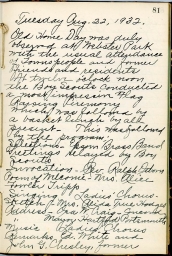 81
Tuesday Aug. 22, 1932.
Old Home Day was duly
observed at Webster Park
with the usual attendance
of Townspeople and former
friends and residents
At twelve o'clock noon
the Boy Scouts conducted
a most impressive Flag
Raising Ceremony
which was followed by
a basket lunch by all
present. This was followed
by the program.
Selections - Brass Band
Greetings relayed by Boy
Scouts
Invocation - Rev. Ralph
Poem of Welcome - Mrs.
Fowler Tripp
Singing - Ladies' Chorus
Mrs. True Hodges
Address - Craig
Mayor Portsmouth
Music Ladies' Chorus
Remarks, and
John G. Chesley, former